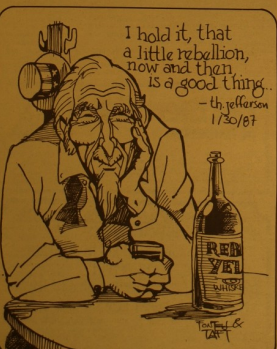 I hold it, that
a little rebellion,
now and then
is a good thing...
- th. jefferson
1/30/87
REB
YEL
WHISKE